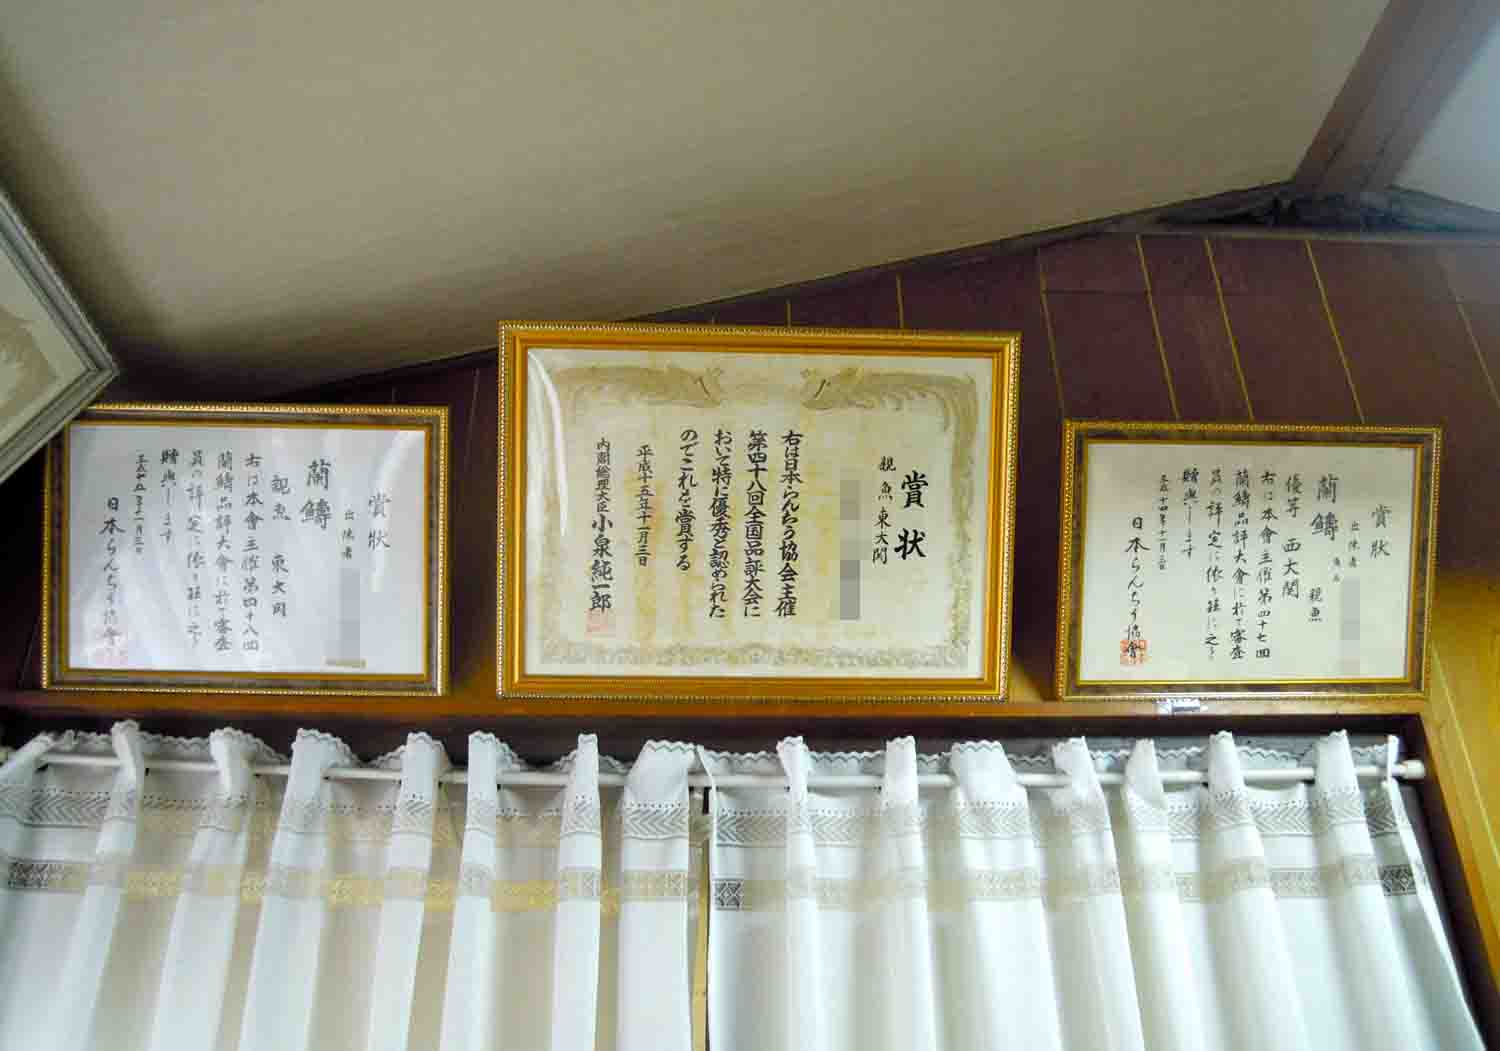 賞状
出陳者
蘭鑄
親魚 東大関
右は本會主催第四十八回
蘭鑄品評大會に於て審査
員の評定に依り茲に之を
贈與します
平成十五年十一月三日
日本らんちう協會
賞状
親魚 東大関
右は日本らんちう協会主催
第四十八回全国品評大会に
おいて特に優秀と認められた
のでこれを賞する
平成十五年十一月三日
内閣総理大臣 小泉純一郎
賞状
出陳者
魚名
蘭鑄 親魚
優等 西大関
右は本會主催第四十七回
蘭鑄品評大會に於て審査
員の評定に依り茲に之を
贈與します
平成十四年十一月三日
日本らんちう協會